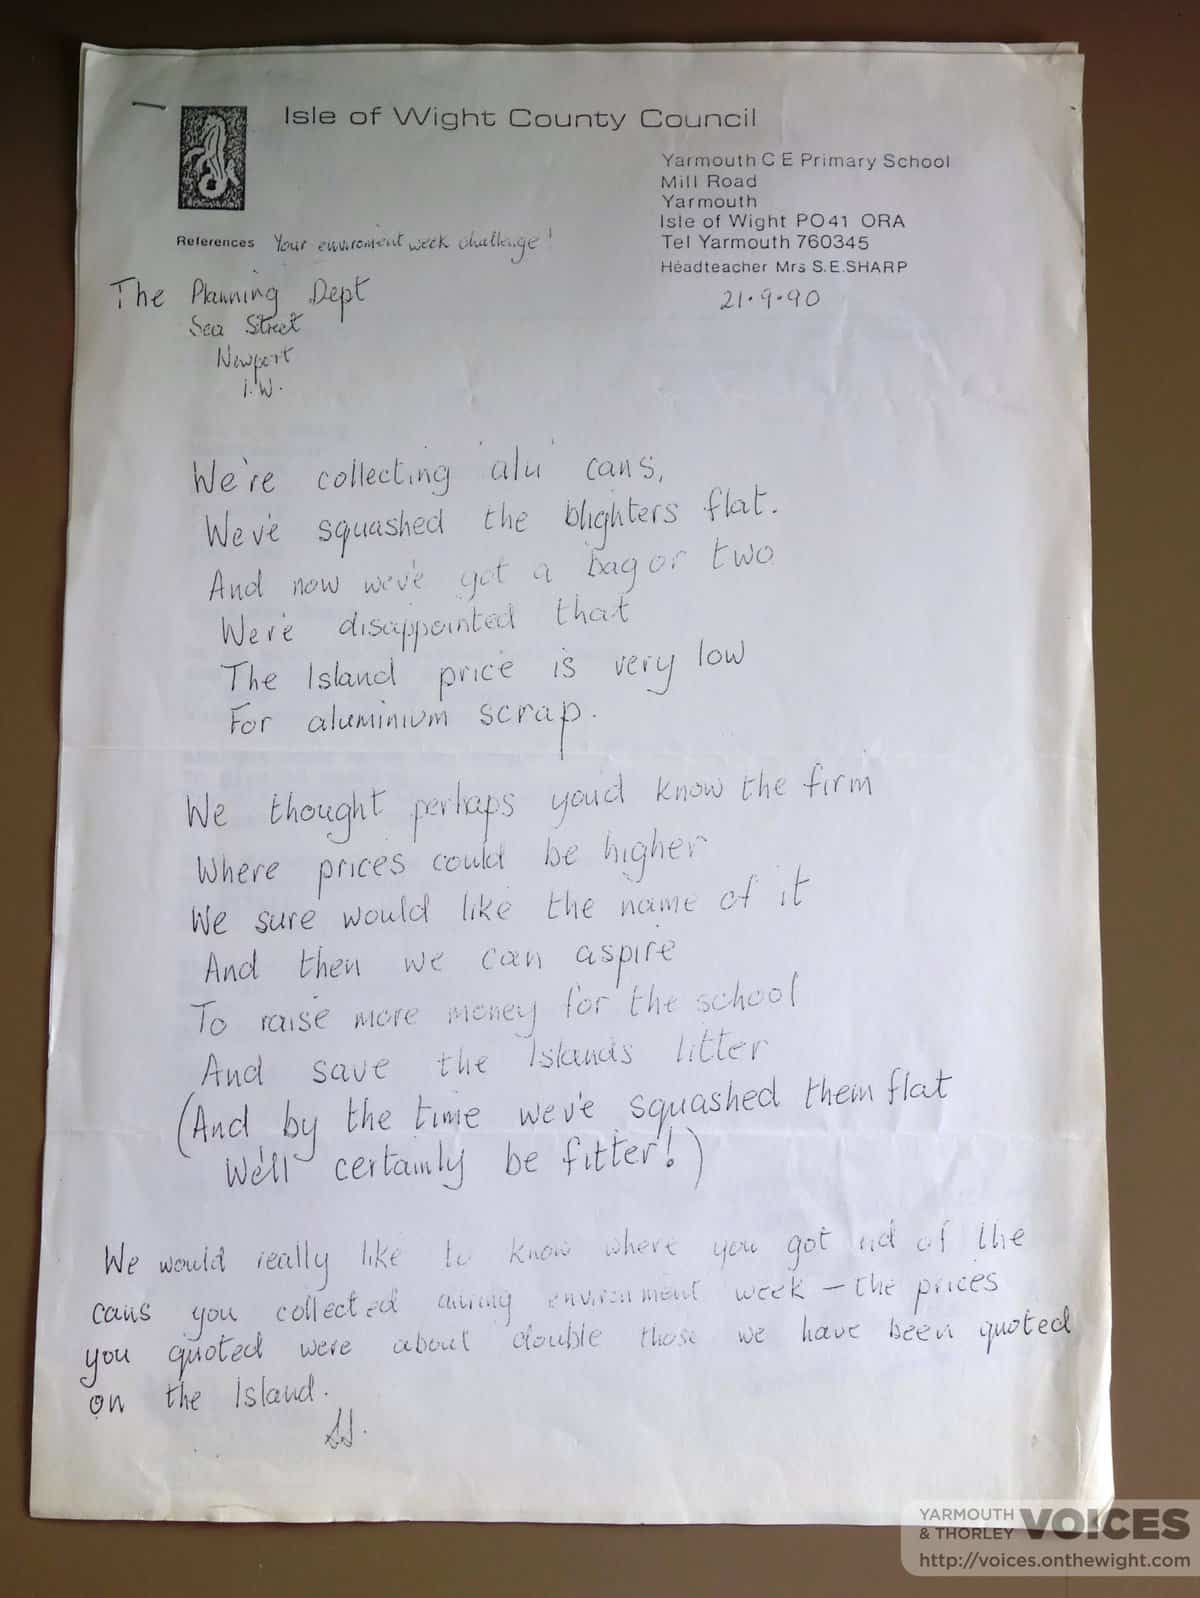 Isle of Wight County Council
Yarmouth C E Primary School
Mill Road
Yarmouth
Isle of Wight PO41 ORA
Tel Yarmouth 760345
Headteacher Mrs S.E.SHARP
21·9·90
References Your enviroment week challenge!
The Planning Dept
Sea Street
Newport
I.W.
We're collecting 'alu' cans,
We've squashed the blighters flat.
And now we've got a bag or two
We're disappointed that
The Island price is very low
For aluminium scrap.
We thought perhaps you'd know the firm
Where prices could be higher
We sure would like the name of it
And then we can aspire
To raise more money for the school
And save the Islands litter
(And by the time we've squashed them flat
We'll certainly be fitter!)
We would really like to know where you got rid of the
cans you collected during environment week – the prices
you quoted were about double those we have been quoted
on the Island.
YARMOUTH & THORLEY VOICES
http://voices.onthewight.com